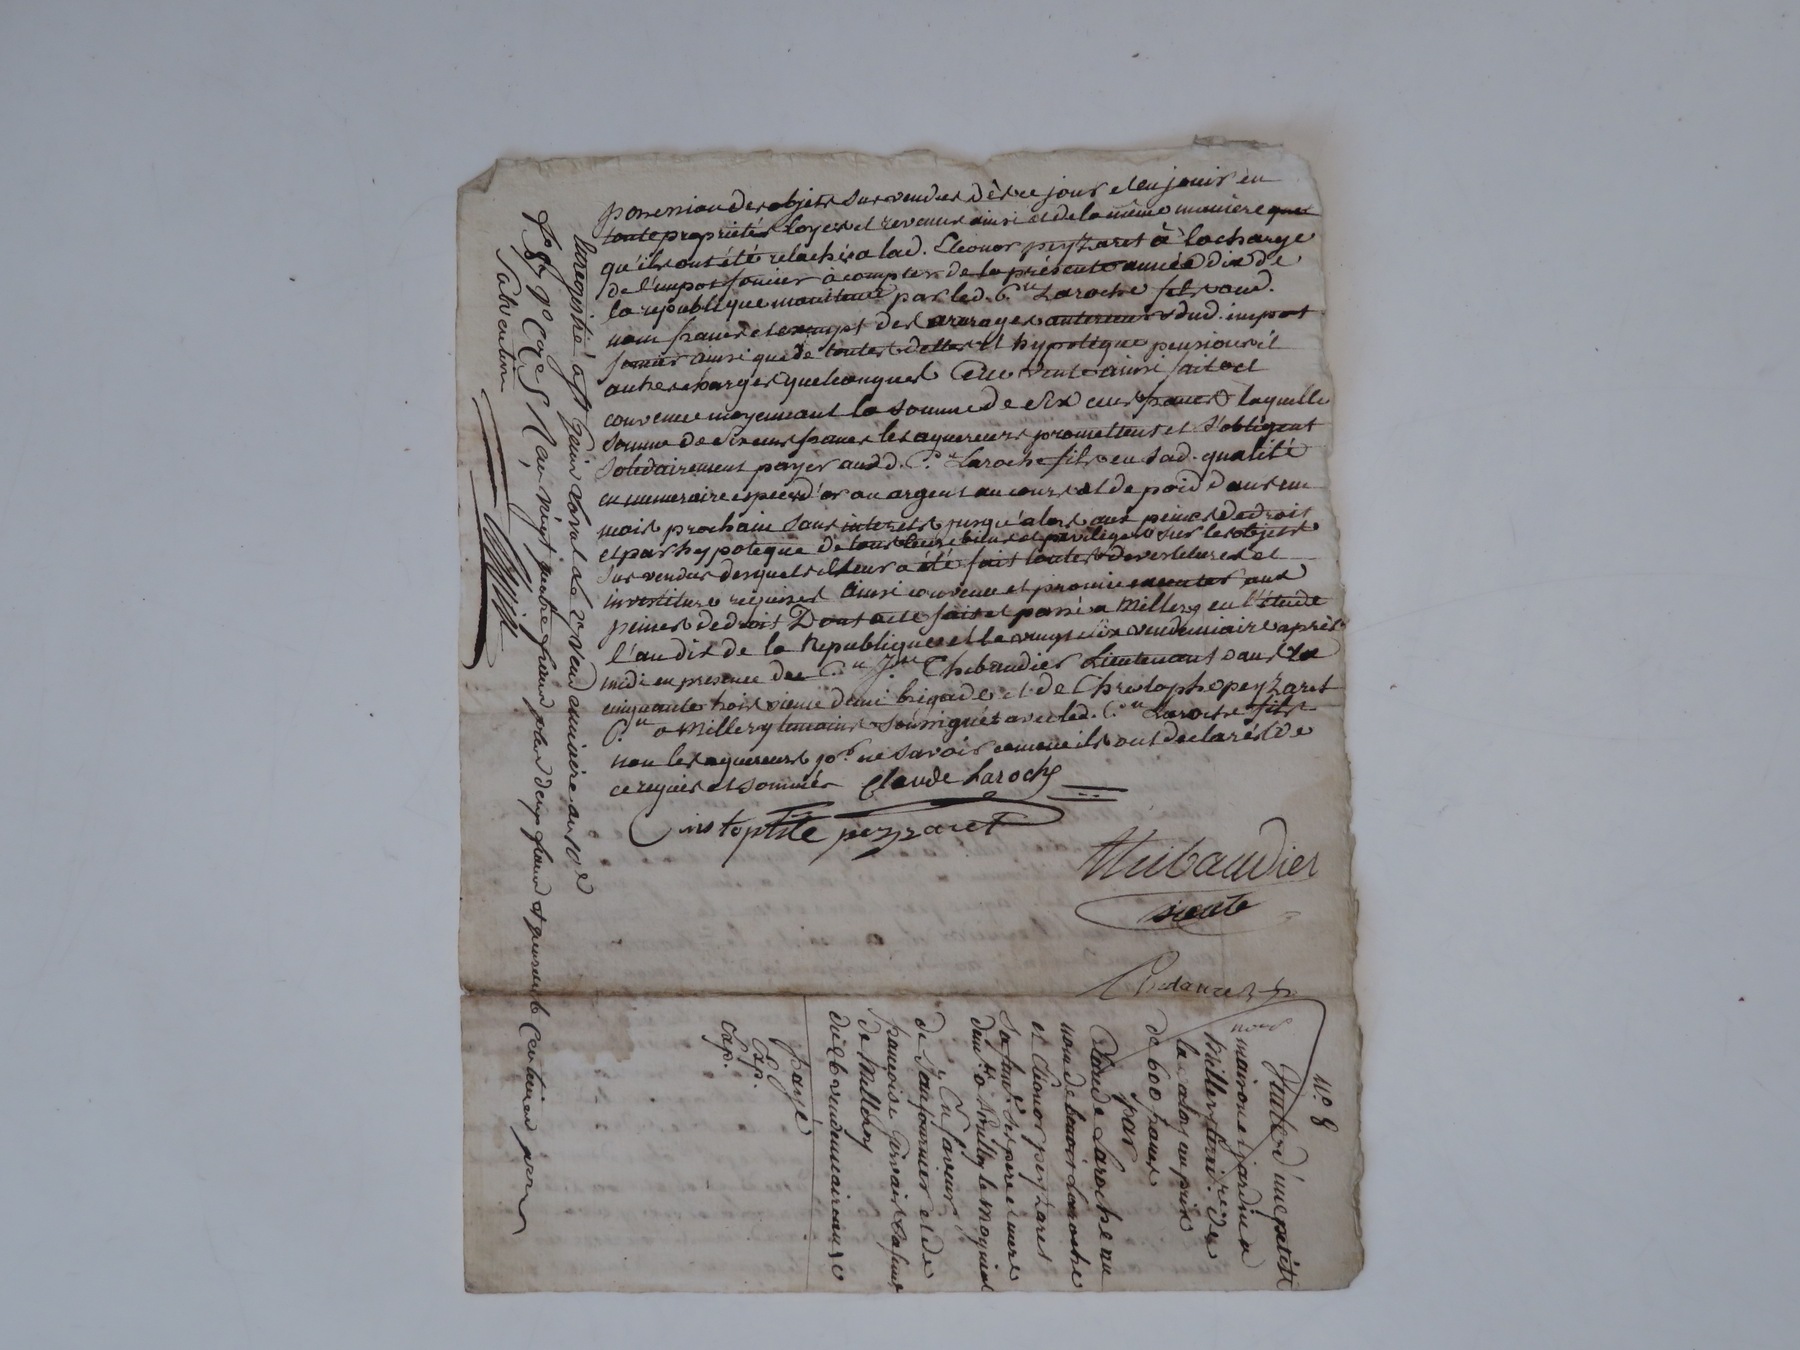 possession des objets sus vendus dès ce jour et en jouir en
toute propriétés loyers et revenus ainsi et de la même manière que
qu'ils ont été relachés a lad. Eleonor peyzaret à la charge
de l'impot foncier à compter de la présente année dix de
la république maintenue par led. C.en Laroche fils aud.
nom francs et exempt des arrerages anterieurs dud. impot
foncier ainsi que de toutes dettes et hypoteque pensions et
autres charges quelconques Cette vente ainsi faite et
convenue moyennant la somme de six cens francs laquelle
somme de six cens francs les aquereurs promettent et s'obligent
solidairement payer aud. C.en Laroche fils en sad. qualité
en numeraire especes d'or ou argent au cours et de poid dans un
mois prochain sans interets jusqu'alors aux peines de droit
et par hypoteque de tous leurs biens et privilege sur les objets
sus vendus desquels il leur a été fait toutes devestitures et
investitures requises Ainsi convenu et promis executer aux
peines de droit Dont acte fait et passé a Millery en l'étude
l'an dix de la Republique et le vingt six vendemiaire après
midi en presence des C.en J. Thibaudier Lieutenant dans la
cinquante troisieme demi brigade et de Christophe peyzaret
C.en a Millery temoins soussignés avec led. C.en Laroche fils
non les aquereurs p.r ne savoir comme ils ont declarés de
ce requis et sommés Claude Laroche
Cristophle peyzaret
Thibaudier
Enregistré à le vend emiaire an 10e
f.o v.o C. 4 5 Reçu vingt quatre francs plus deux francs quarante centimes pour
subvention
N.o 8
Vente d'une petite
maison et jardin a
Millery
la valeur au prix
de 600 francs
par
Claude Laroche au
nom de benoit Laroche
et Eleonor peyzaret
sa fem.e ses pere et mere
dem.ts a le Moynial
En faveur
de Jan fournier et de
francoise Gervais sa femme
de Millery
du 26 vendemiaire an 10
payé
Exp.
Cap.